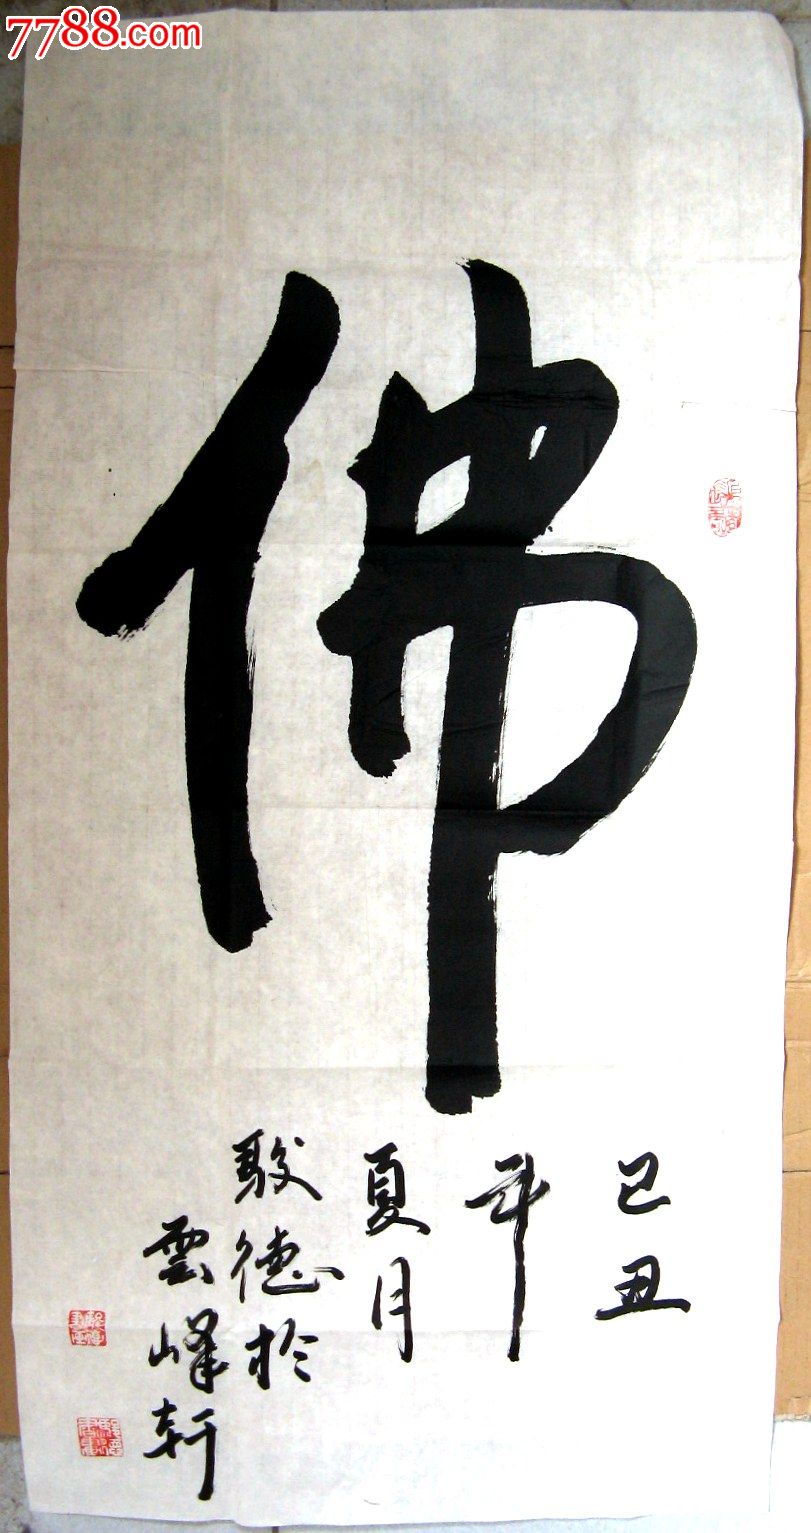 7788.com
佛
己丑
年
夏月
駿德於
雲峰軒